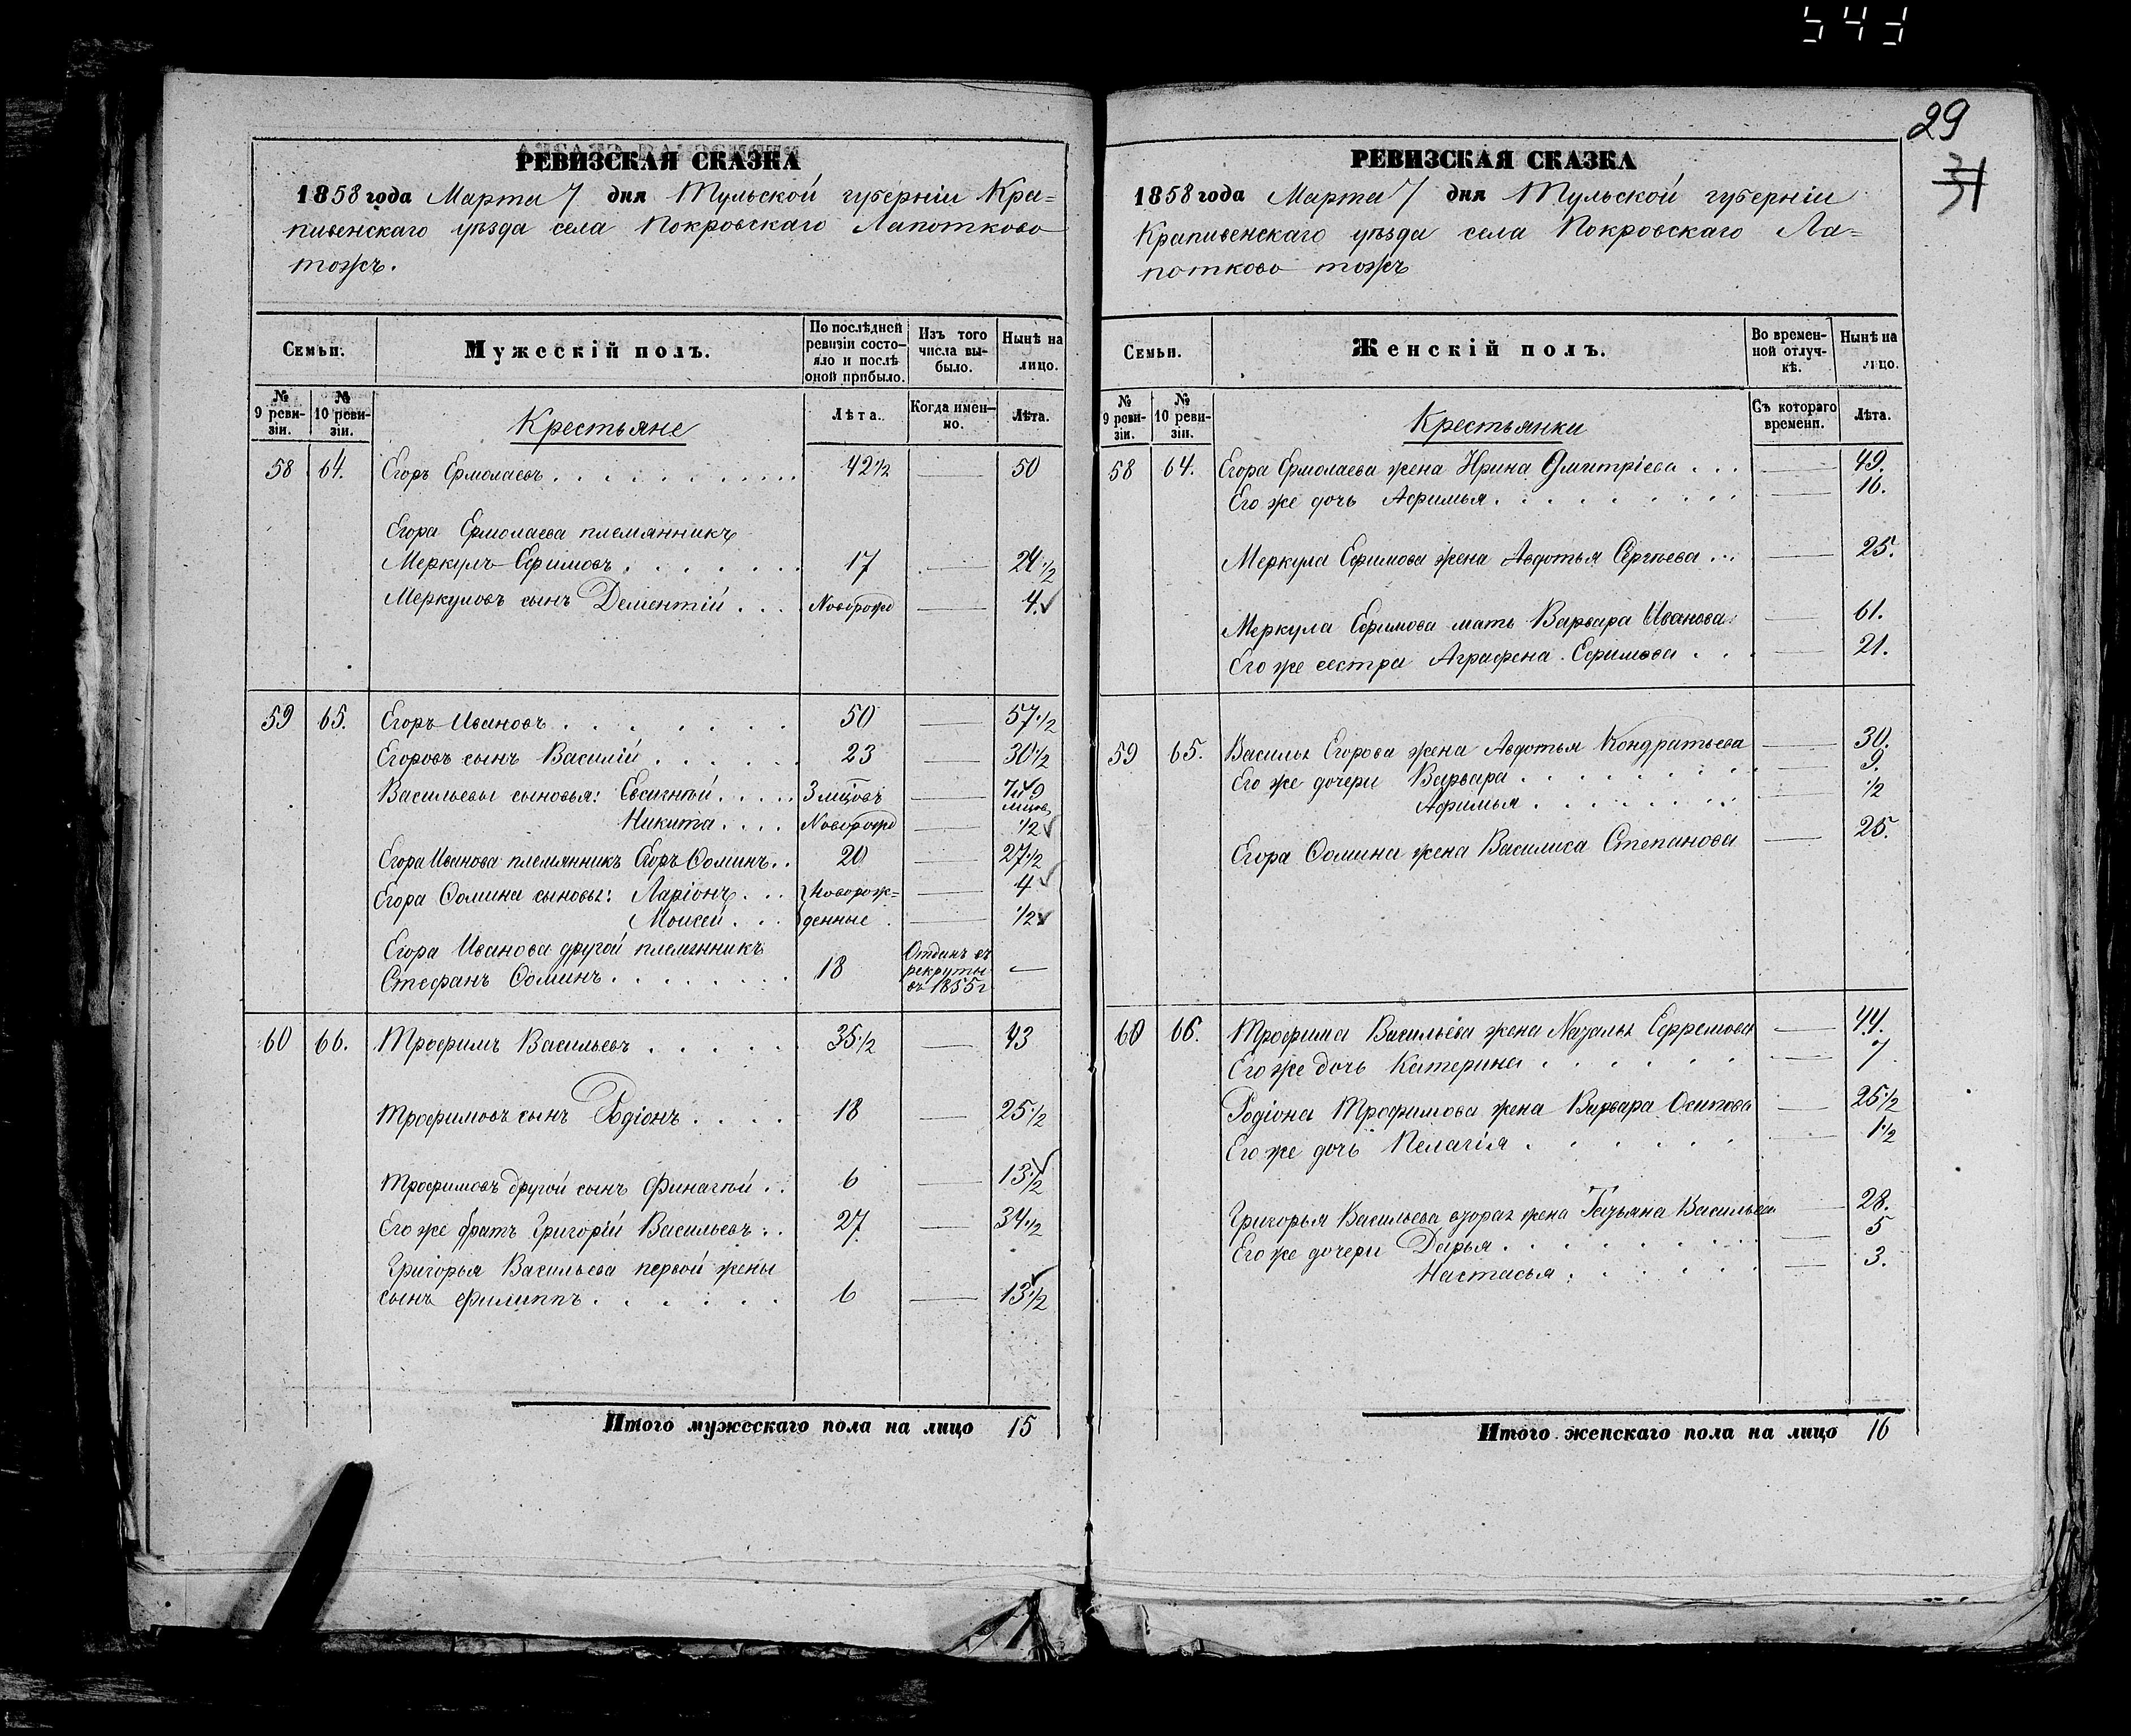 543
29
31
РЕВИЗСКАЯ СКАЗКА
1858 года Марта 7 дня Тульской губерніи Кра=
пивенскаго уѣзда села Покровскаго Лапотково
тожъ.
Семьи.
Мужескій полъ.
По послѣдней ревизіи состояло и послѣ оной прибыло.
Изъ того числа выбыло.
Нынѣ на лицо.
№ 9 ревизіи.
№ 10 ревизіи.
Крестьяне
Лѣта.
Когда именно.
Лѣта.
58 64. Егоръ Ермолаевъ . . . . 42½ — 50
Егора Ермолаева племянникъ
Меркулъ Ефимовъ . . . . 17 — 24½
Меркуловъ сынъ Дементій . . . Новорожд — 4.
59 65. Егоръ Ивановъ . . . . 50 — 57½
Егоровъ сынъ Василій . . . . 23 — 30½
Васильевы сыновья: Евсигнѣй . . . . 3 мцовъ — 7 и 9 мцовъ
Никита . . . . Новорожд — ½
Егора Иванова племянникъ Егоръ Ѳоминъ . . 20 — 27½
Егора Ѳомина сыновья: Ларіонъ . . . Новорож= — 4
Моисей . . . денные — ½
Егора Иванова другой племянникъ
Стефанъ Ѳоминъ . . . . 18 Отданъ въ рекруты въ 1855 г —
60 66. Трофимъ Васильевъ . . . . 35½ — 43
Трофимовъ сынъ Родіонъ . . . . 18 — 25½
Трофимовъ другой сынъ Финагѣй . . 6 — 13½
Его же братъ Григорій Васильевъ . . 27 — 34½
Григорья Васильева первой жены
сынъ Филиппъ . . . . 6 — 13½
Итого мужескаго пола на лицо 15
РЕВИЗСКАЯ СКАЗКА
1858 года Марта 7 дня Тульской губерніи
Крапивенскаго уѣзда села Покровскаго Ла=
потково тожъ
Семьи.
Женскій полъ.
Во временной отлучкѣ.
Нынѣ на лицо.
№ 9 ревизіи.
№ 10 ревизіи.
Крестьянки
Съ котораго времени.
Лѣта.
58 64. Егора Ермолаева жена Ирина Дмитріева . . . — 49.
Его же дочь Афимья . . . . — 16.
Меркула Ефимова жена Авдотья Сергѣева . . . — 25.
Меркула Ефимова мать Варвара Иванова — 61.
Его же сестра Аграфена Ефимова . . . — 21.
59 65. Василья Егорова жена Авдотья Кондратьева — 30.
Его же дочери Варвара . . . . — 9.
Афимья . . . . — ½
Егора Ѳомина жена Василиса Степанова — 25.
60 66. Трофима Васильева жена Наталья Ефремова — 44.
Его же дочь Катерина . . . . — 7
Родіона Трофимова жена Варвара Осипова — 25½
Его же дочь Пелагія . . . . — 1½
Григорья Васильева вторая жена Татьяна Васильева — 28.
Его же дочери Дарья . . . . — 5
Настасья . . . . — 3.
Итого женскаго пола на лицо 16